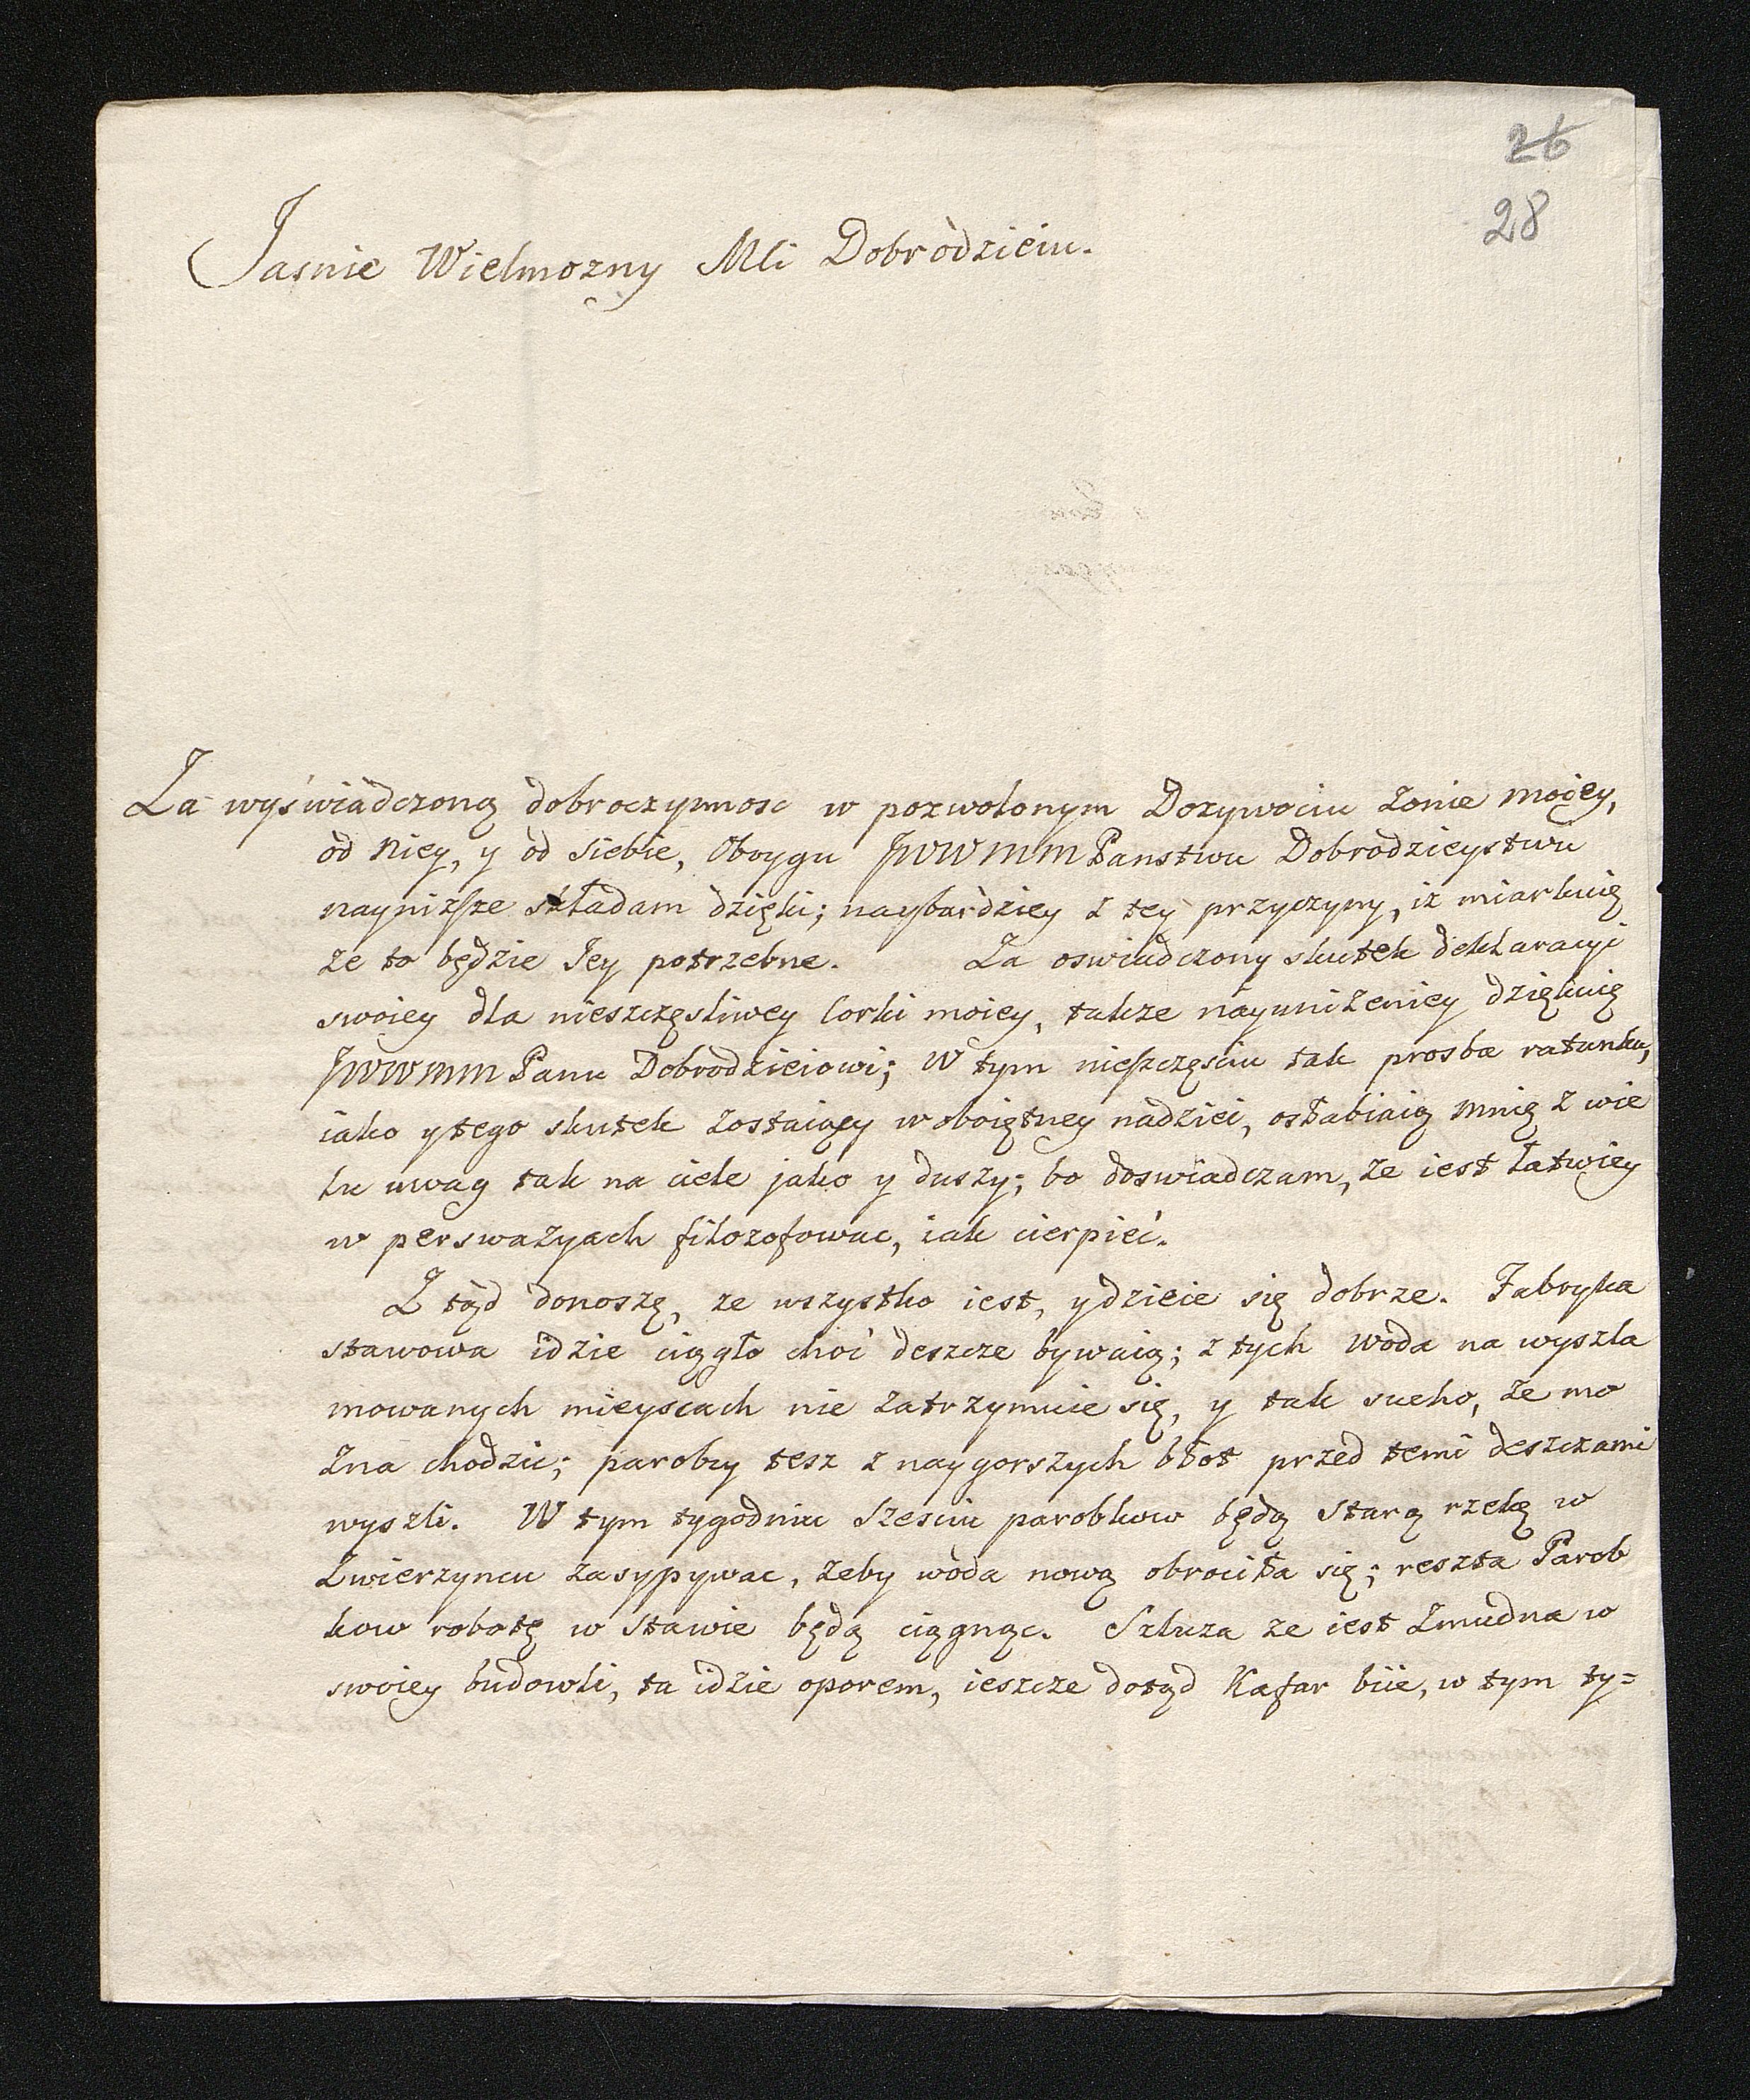 26
28
Jasnie Wielmozny Mći Dobrodzieiu.
Za wyświadczoną dobroczynnosc w pozwolonym Dozywociu Zonie moiey,
od Niey, y od siebie, Oboygu JWWMM Panstwu Dobrodzieystwu
naynizsze składam dzięki; naybardziey z tey przyczyny, iz miarkuię
ze to będzie Jey potrzebne. Za oswiadczony skutek deklaracyi
swoiey dla nieszczęsliwey Corki moiey, takze nayunizeniey dziękuię
JWWMM Panu Dobrodzieiowi; W tym nieszczęsciu tak prosba ratunku,
iako y tego skutek zostaiący w oboiętney nadziei, osłabiaią mnię z wie
lu uwag tak na ciele jako y duszy; bo doswiadczam, ze iest łatwiey
w perswazyach filozofowac, iak cierpieć.
Z tąd donoszę, ze wszystko iest, y dzieie się dobrze. Fabryka
stawowa idzie ciągło choć deszcze bywaią; z tych woda na wyszla
mowanych mieyscach nie zatrzymuie się, y tak sucho, ze mo
zna chodzic; parobcy tesz z naygorszych błot przed temi deszczami
wyszli. W tym tygodniu szesciu parobkow będą starą rzekę w
Zwierzyncu zasypywac, zeby woda nową obrociła się; reszta Parob
kow robotę w stawie będą ciągnąc. Szluza ze iest zmudna w
swoiey budowli, ta idzie oporem, ieszcze dotąd Kafar biie, w tym ty=